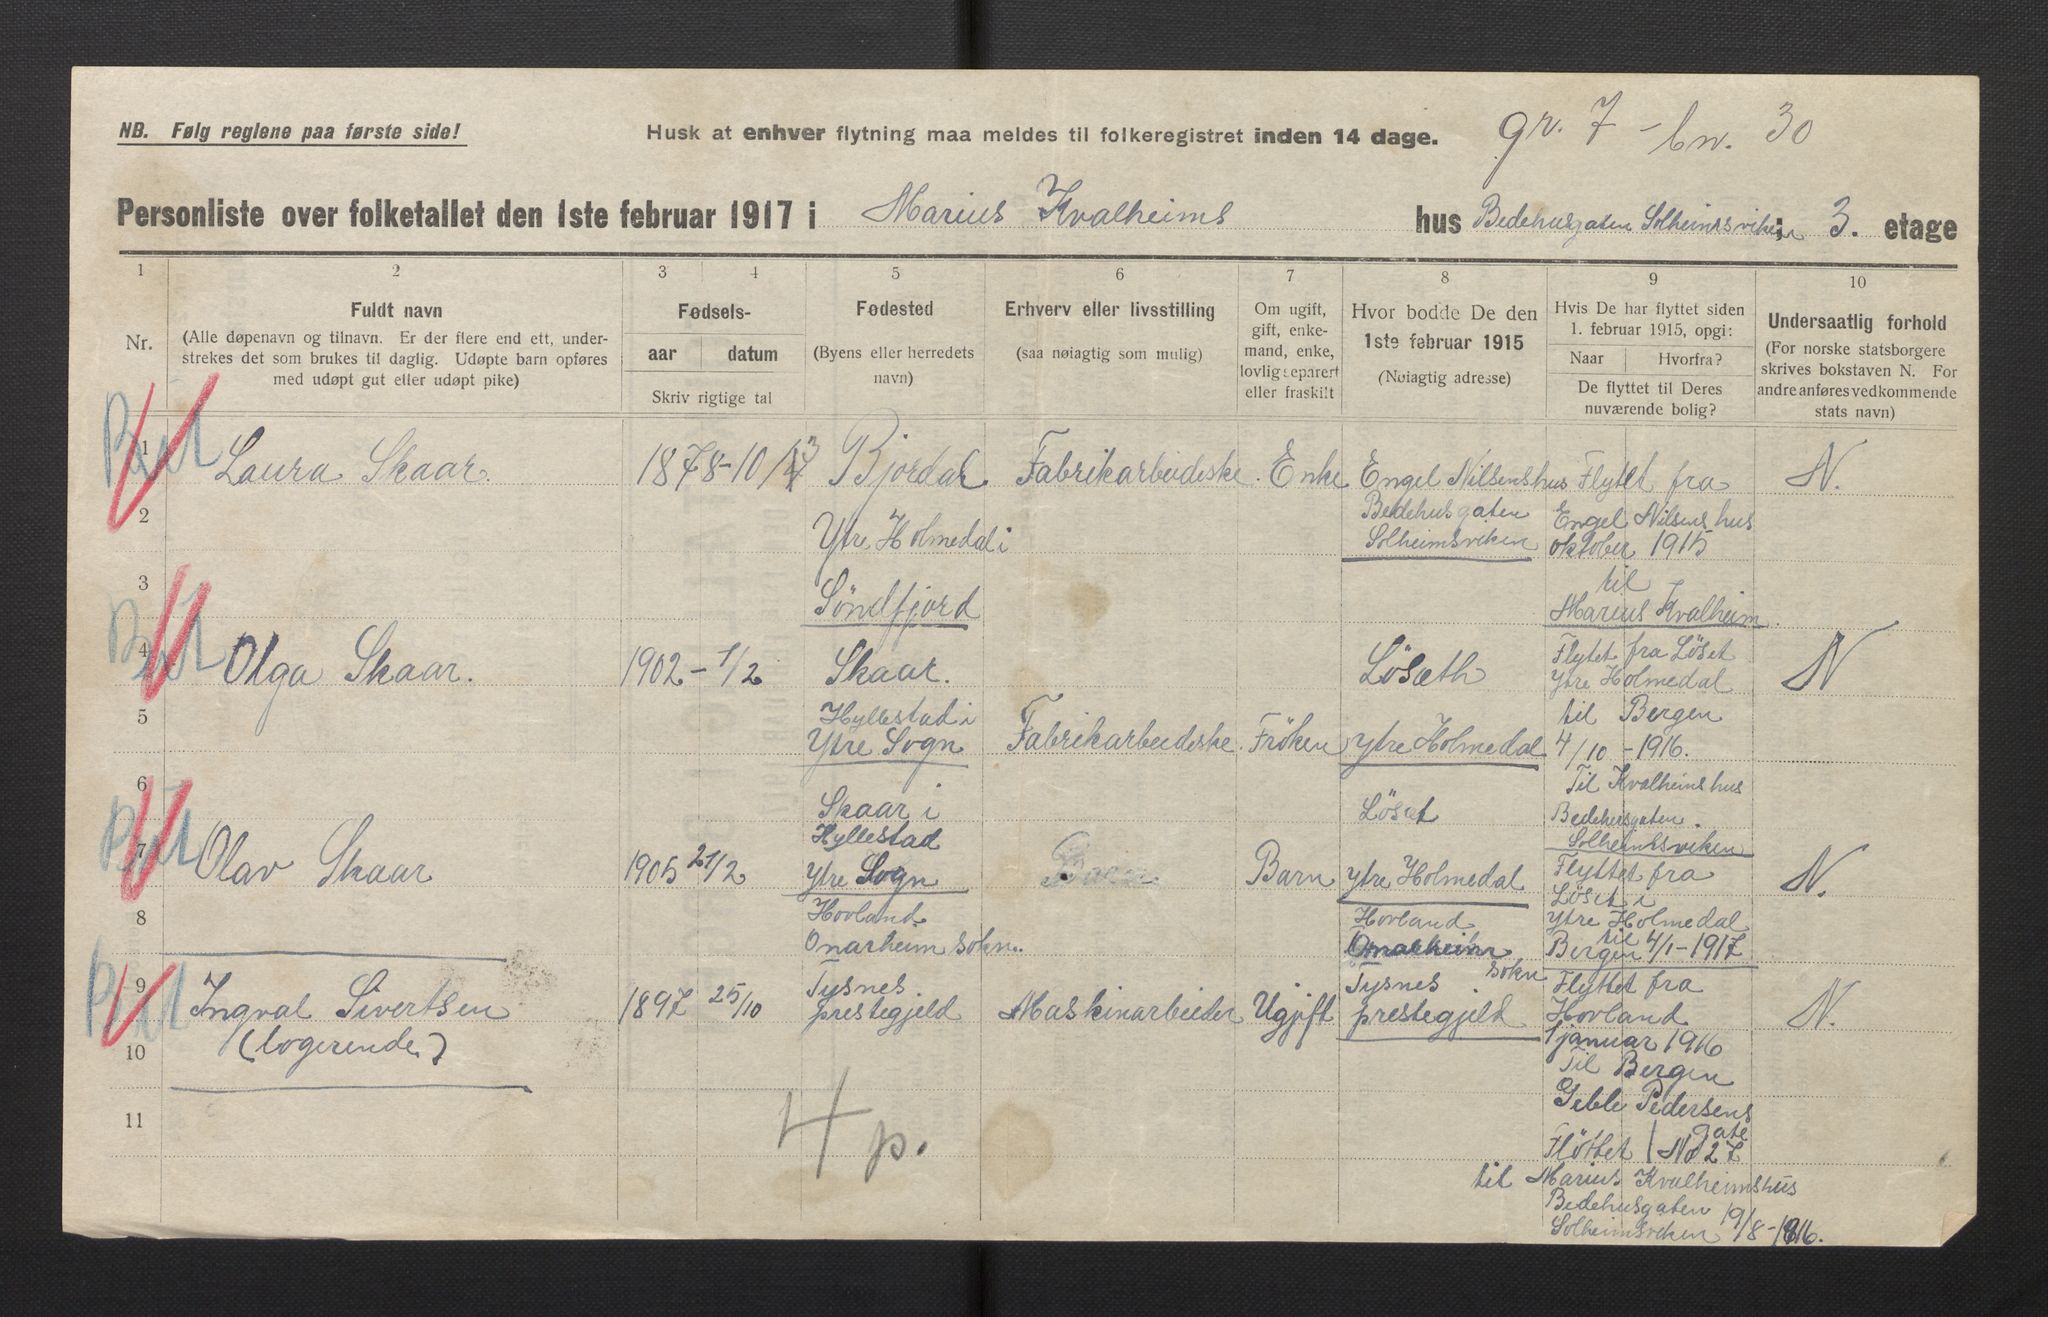 NB. Følg reglene paa første side!
Husk at enhver flytning maa meldes til folkeregistret inden 14 dage.
gr. 7 - bn. 30
Personliste over folketallet den 1ste februar 1917 i Marius Kvalheims hus Bedehusgaten Solheimsviken; 3. etage
1 2 3 4 5 6 7 8 9 10
Nr.
Fuldt navn
(Alle døpenavn og tilnavn. Er der flere end ett, under-
strekes det som brukes til daglig. Udøpte barn opføres
med udøpt gut eller udøpt pike)
Fødsels-
aar datum
Skriv rigtige tal
Fødested
(Byens eller herredets
navn)
Erhverv eller livsstilling
(saa nøiagtig som mulig)
Om ugift,
gift, enke-
mand, enke,
lovlig separert
eller fraskilt
Hvor bodde De den
1ste februar 1915
(Nøiagtig adresse)
Hvis De har flyttet siden
1. februar 1915, opgi:
Naar Hvorfra?
De flyttet til Deres
nuværende bolig?
Undersaatlig forhold
(For norske statsborgere
skrives bokstaven N. For
andre anføres vedkommende
stats navn)
1
Laura Skaar.
1878-10/
Bjordal
Ytre Holmedal i
Söndfjord
Fabrikarbeideske.
Enke
Engel Nilsenshus
Bedehusgaten
Solheimsviken
Flytet fra
Engel Nilsens hus
oktober 1915
til
Marius Kvalheim.
N.
2
3
4
Olga Skaar.
1902 - 1/2
Skaar.
Hyllestad i
Ytre Sogn
Fabrikarbeideske.
Fröken
Lösæth
ytre Holmedal
Flytet fra Löset
Ytre Holmedal
til Bergen
4/10 - 1916.
Til Kvalheimshus
Bedehusgaten.
Solheimsviken
N
5
6
7
Olav Skaar
1905 21/2
Skaar i
Hyllestad
Ytre Sogn
Barn
Barn
Löset
ytre Holmedal
Flyttet fra
Löset i
Ytre Holmedal
til
Bergen 4/1 - 1917
N.
8
9
Ingval Sivertsen
(logerende)
1897 25/10
Hovland
Onarheim sokn.
Tysnes
prestegjeld
Maskinarbeider
Ugjift
Hovland
Onarheim
sokn
Tysnes
prestegjeld
Flyttet fra
Hovland
januar 1916
Til Bergen
Geble Pedersens
gate
Flöttet No 27
til Marius Kvalheimshus
Bedehusgaten
Solheimsviken 19/8-1916.
N.
10
11
4 p.